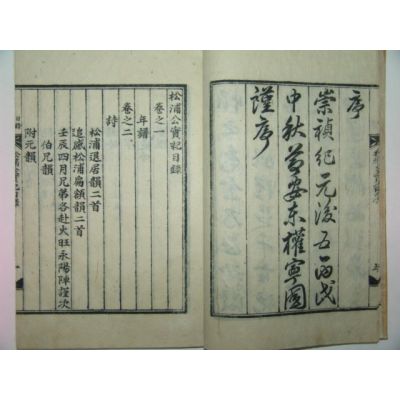 序
崇禎紀元後五丙戌
中秋安東權寧圖
謹序
松浦公實紀目錄
卷之一
年譜
卷之二
詩
松浦退居韻二首
追感松浦扁額韻二首
壬辰四月兄弟各赴火旺永陽陣謹次
伯兄韻
附元韻